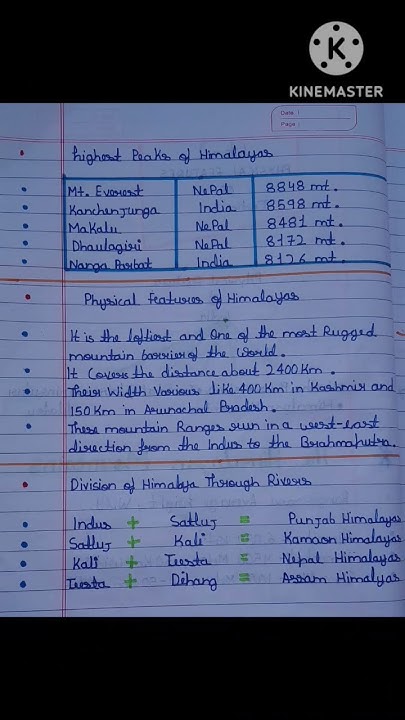 K
KINEMASTER
Date :
Page :
highest Peaks of Himalayas
Mt. Everest NePal 8848 mt.
Kanchenjunga India 8598 mt.
Makalu NePal 8481 mt.
Dhaulagiri NePal 8172 mt.
Nanga Parbat India 8126 mt.
Physical features of Himalayas
It is the loftiest and One of the most Rugged
mountain barrier of the World.
It Covers the distance about 2400 Km.
Their Width Various like 400 Km in Kashmir and
150 Km in Arunachal Pradesh.
These mountain Ranges run in a west-east
direction from the Indus to the Brahmaputra.
Division of Himalya Through Rivers
Indus + Satluj = Punjab Himalayas
Satluj + Kali = Kamaon Himalayas
Kali + Teesta = Nepal Himalayas
Teesta + Dihang = Assam Himalyas